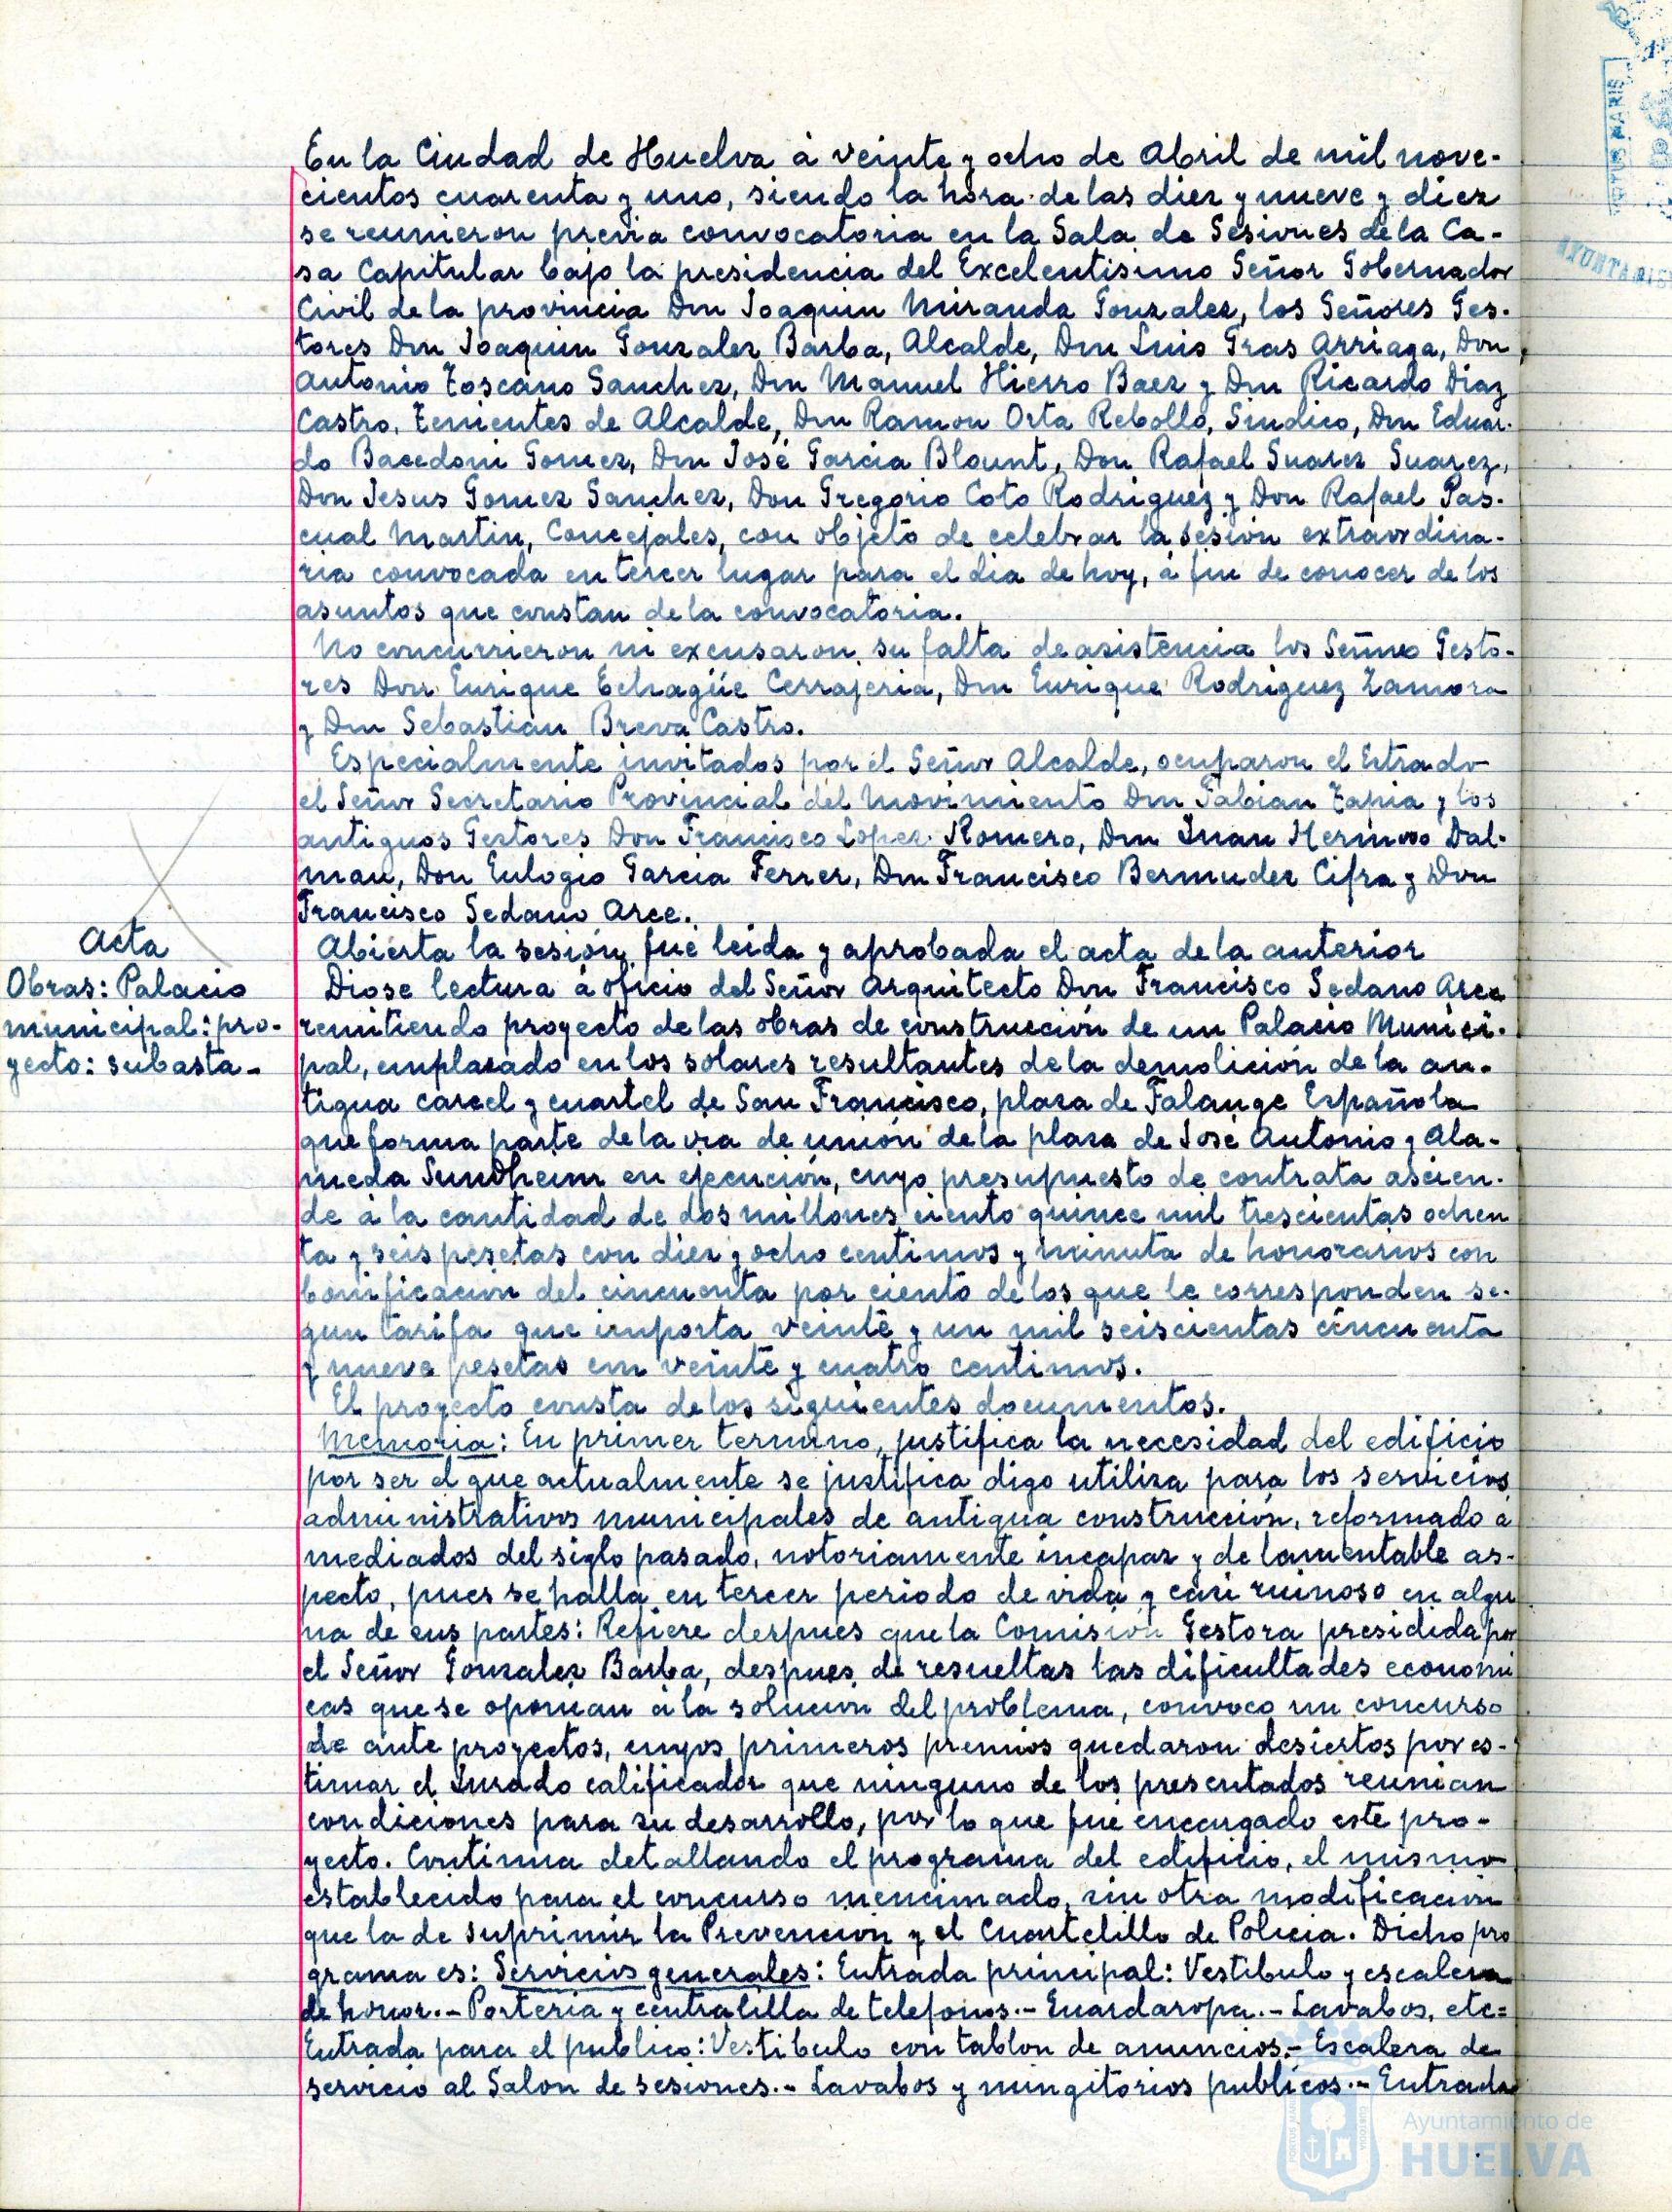 En la Ciudad de Huelva à veinte y ocho de Abril de mil nove-
cientos cuarenta y uno, siendo la hora de las diez y nueve y diez
se reunieron previa convocatoria en la Sala de Sesiones de la Ca-
sa Capitular bajo la presidencia del Excelentisimo Señor Gobernador
Civil de la provincia Don Joaquin Miranda Gonzalez, los Señores Ges-
tores Don Joaquin Gonzalez Barba, Alcalde, Don Luis Gras Arriaga, Don
Antonio Toscano Sanchez, Don Manuel Hierro Baez y Don Ricardo Diaz
Castro, Tenientes de Alcalde, Don Ramon Orta Rebollo, Sindico, Don Eduar-
do Bacedoni Gomez, Don José Garcia Blount, Don Rafael Suarez Suarez,
Don Jesus Gomez Sanchez, Don Gregorio Coto Rodriguez y Don Rafael Pas-
cual Martin, Concejales, con objeto de celebrar la sesión extraordina-
ria convocada en tercer lugar para el dia de hoy, à fin de conocer de los
asuntos que constan de la convocatoria.
No concurrieron ni excusaron su falta de asistencia los Señores Gesto-
res Don Enrique Echagüe Cerrajeria, Don Enrique Rodriguez Zamora
y Don Sebastian Breva Castro.
Especialmente invitados por el Señor Alcalde, ocuparon el Estrado
el Señor Secretario Provincial del Movimiento Don Fabian Tapia y los
antiguos Gestores Don Francisco Lopez Romero, Don Juan Hermoso Dal-
mau, Don Eulogio Garcia Ferrer, Don Francisco Bermudez Cifra y Don
Francisco Sedano Arce.
Acta
Abierta la sesión fué leida y aprobada el acta de la anterior
Obras: Palacio
municipal: pro-
yecto: subasta-
Diose lectura à oficio del Señor Arquitecto Don Francisco Sedano Arce
remitiendo proyecto de las obras de construcción de un Palacio Munici-
pal, emplazado en los solares resultantes de la demolición de la an-
tigua carcel y cuartel de San Francisco, plaza de Falange Española
que forma parte de la via de unión de la plaza de José Antonio y Ala-
meda Sundheim en ejecución, cuyo presupuesto de contrata ascien-
de à la cantidad de dos millones ciento quince mil trescientas ochen
ta y seis pesetas con diez y ocho centimos y minuta de honorarios con
bonificacion del cincuenta por ciento de los que le corresponden se-
gun tarifa que importa veinte y un mil seiscientas cincuenta
y nueve pesetas con veinte y cuatro centimos.
El proyecto consta de los siguientes documentos.
Memoria: En primer termino, justifica la necesidad del edificio
por ser el que actualmente se justifica digo utiliza para los servicios
administrativos municipales de antigua construcción, reformado à
mediados del siglo pasado, notoriamente incapaz y de lamentable as-
pecto, pues se halla en tercer periodo de vida y casi ruinoso en algu
na de sus partes: Refiere despues que la Comision Gestora presidida por
el Señor Gonzalez Barba, despues de resueltas las dificultades economi
cas que se oponian à la solucion del problema, convoco un concurso
de ante proyectos, cuyos primeros premios quedaron desiertos por es-
timar el Jurado calificador que ninguno de los presentados reunian
condiciones para su desarrollo, por lo que fué encargado este pro-
yecto. Continua detallando el programa del edificio, el mismo
establecido para el concurso mencionado, sin otra modificacion
que la de suprimir la Prevencion y el Cuartelillo de Policia. Dicho pro
grama es: Servicios generales: Entrada principal: Vestibulo y escalera
de honor.- Porteria y centralilla de telefonos.- Guardaropa.- Lavabos, etc=
Entrada para el publico: Vestibulo con tablon de anuncios.- Escalera de
servicio al Salon de sesiones.- Lavabos y mingitorios publicos.- Entrada
Ayuntamiento de
HUELVA